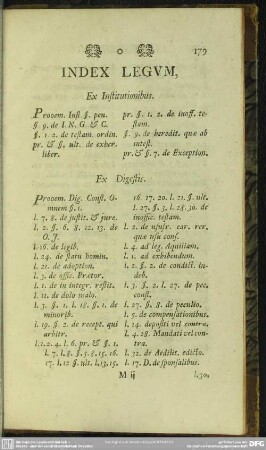 179
INDEX LEGVM,
Ex Institutionibus.
Prooem. Inst. §. pen.
§. 9. de I. N. G. & C.
§. 1. 2. de testam. ordin.
pr. & §. ult. de exher.
liber.
pr. §. 1. 2. de inoff. te-
stam.
§. 9. de heredit. quæ ab
intest.
pr. & §. 7. de Exception.
Ex Digestis.
Prooem. Dig. Const. O-
mnem §. 1.
l. 7. 8. de justit. & jure.
l. 2. §. 6. 8. 12. 13. de
O. J.
l. 16. de legib.
l. 24. de statu homin.
l. 21. de adoption.
l. 3. de offic. Prætor.
l. 1. de in integr. restit.
l. 11. de dolo malo.
l. 3. §. 1. l. 18. §. 1. de
minorib.
l. 19. §. 2. de recept. qui
arbitr.
l. 1. 2. 4. l. 6. pr. & §. 1.
l. 7. l. 8. §. 5. 8. 15. 16.
17. l. 12 §. ult. l. 13. 15.
16. 17. 20. l. 21. §. ult.
l. 27. §. 3. l. 28. 30. de
inoffic. testam.
l. 2. de usufr. ear. rer.
quæ usu conf.
l. 4. ad leg. Aquiliam.
l. 1. ad exhibendum.
l. 2. §. 2. de condict. in-
deb.
l. 3. §. 2. l. 27. de pec.
const.
l. 27. §. 8. de peculio.
l. 5. de compensationibus.
l. 14. depositi vel contra.
l. 4. 28. Mandati vel con-
tra.
l. 32. de Aedilit. edicto.
l. 17. D. de sponsalibus.
M ij
l. 30.